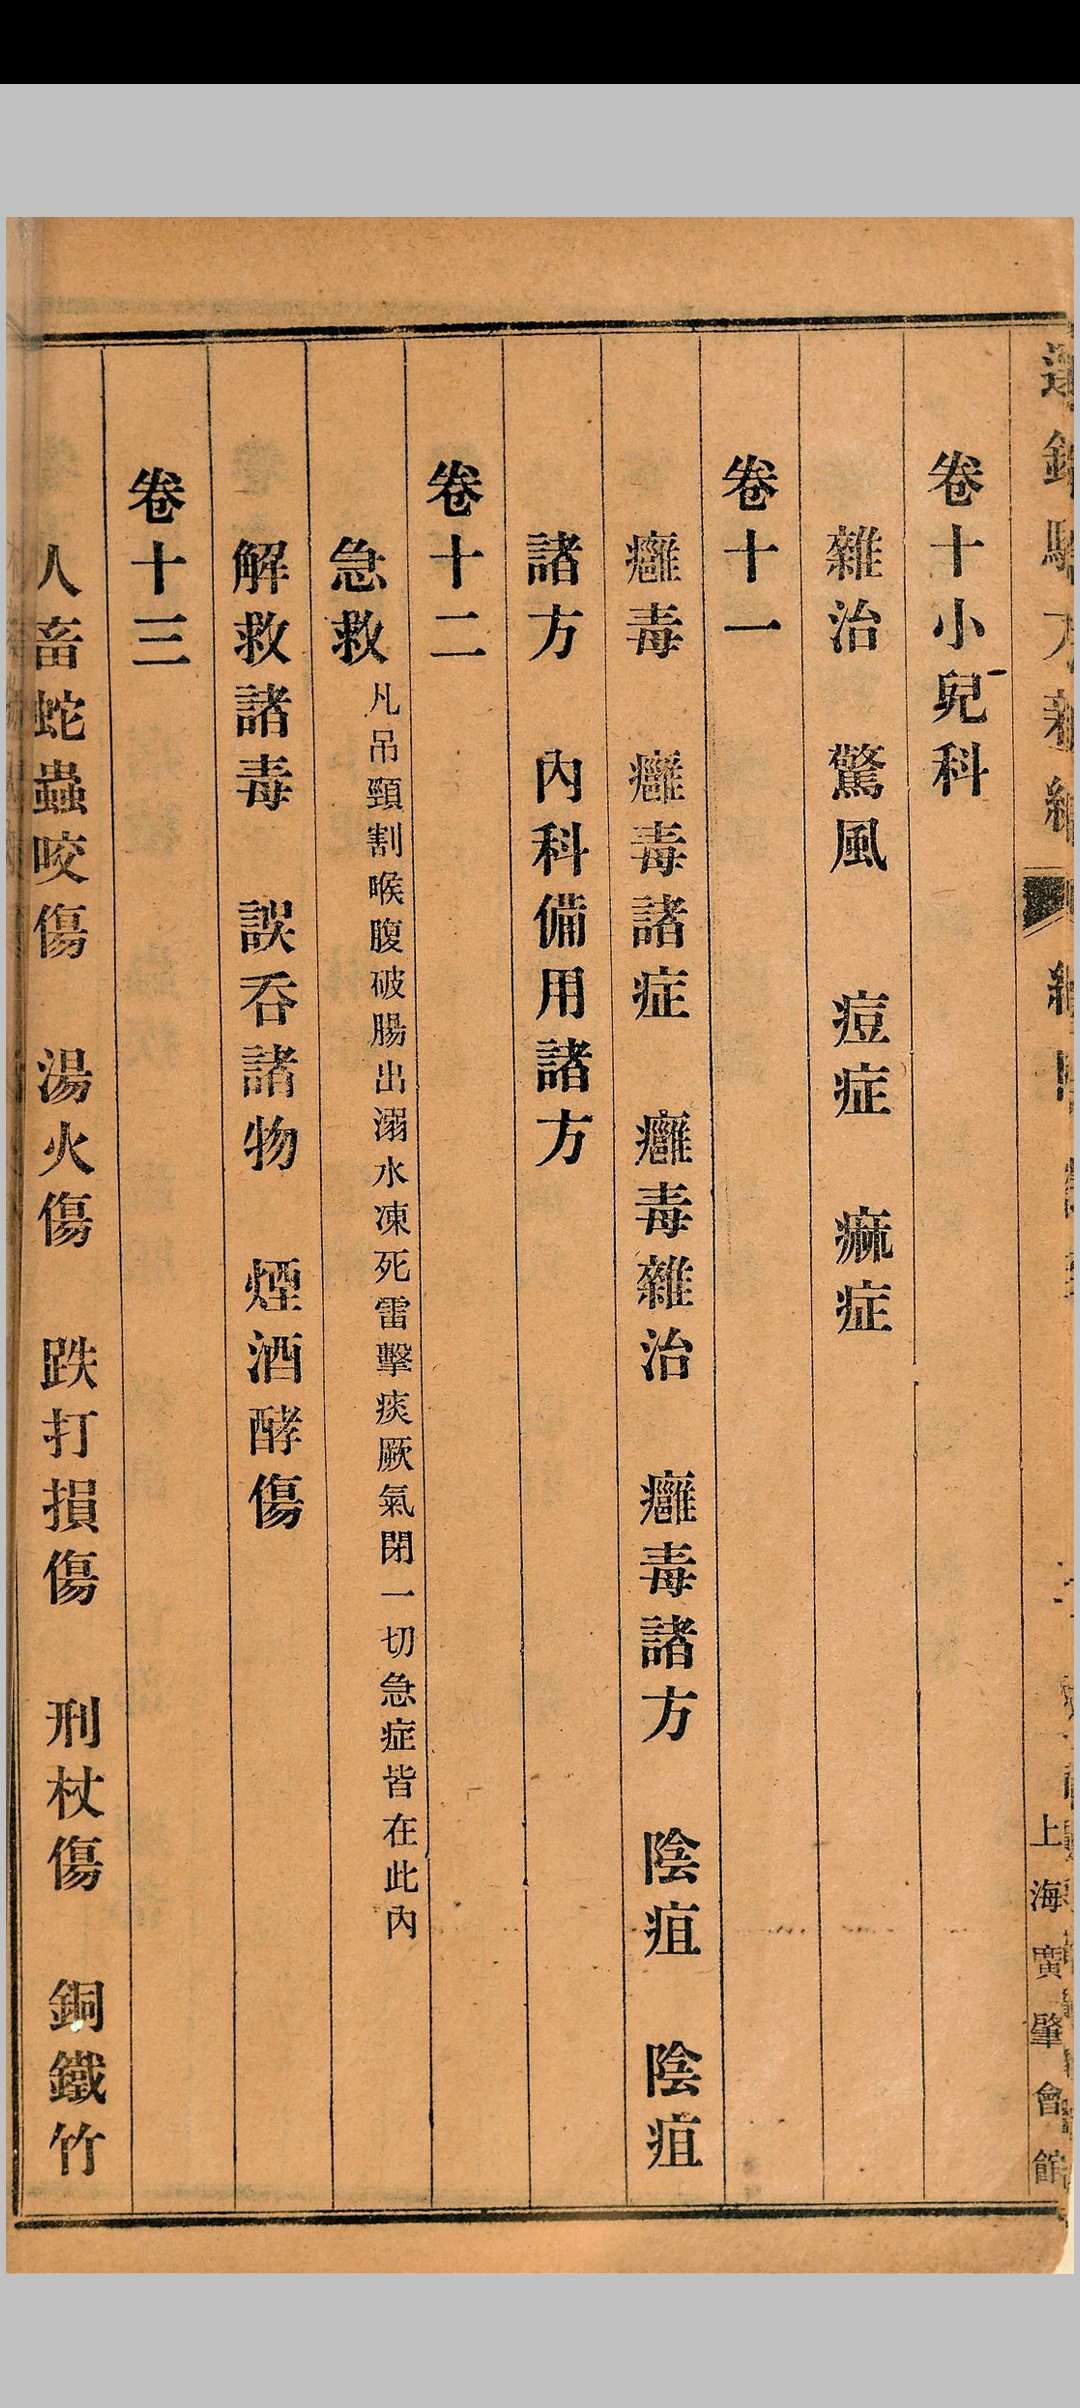 卷十小兒科
雜治 驚風 痘症 痲症
卷十一
癰毒 癰毒諸症 癰毒雜治 癰毒諸方 陰疽 陰疽
諸方 內科備用諸方
卷十二
急救 凡吊頸割喉腹破腸出溺水凍死雷擊痰厥氣閉一切急症皆在此內
解救諸毒 誤吞諸物 煙酒酵傷
卷十三
人畜蛇蟲咬傷 湯火傷 跌打損傷 刑杖傷 銅鐵竹
上海廣肇會館